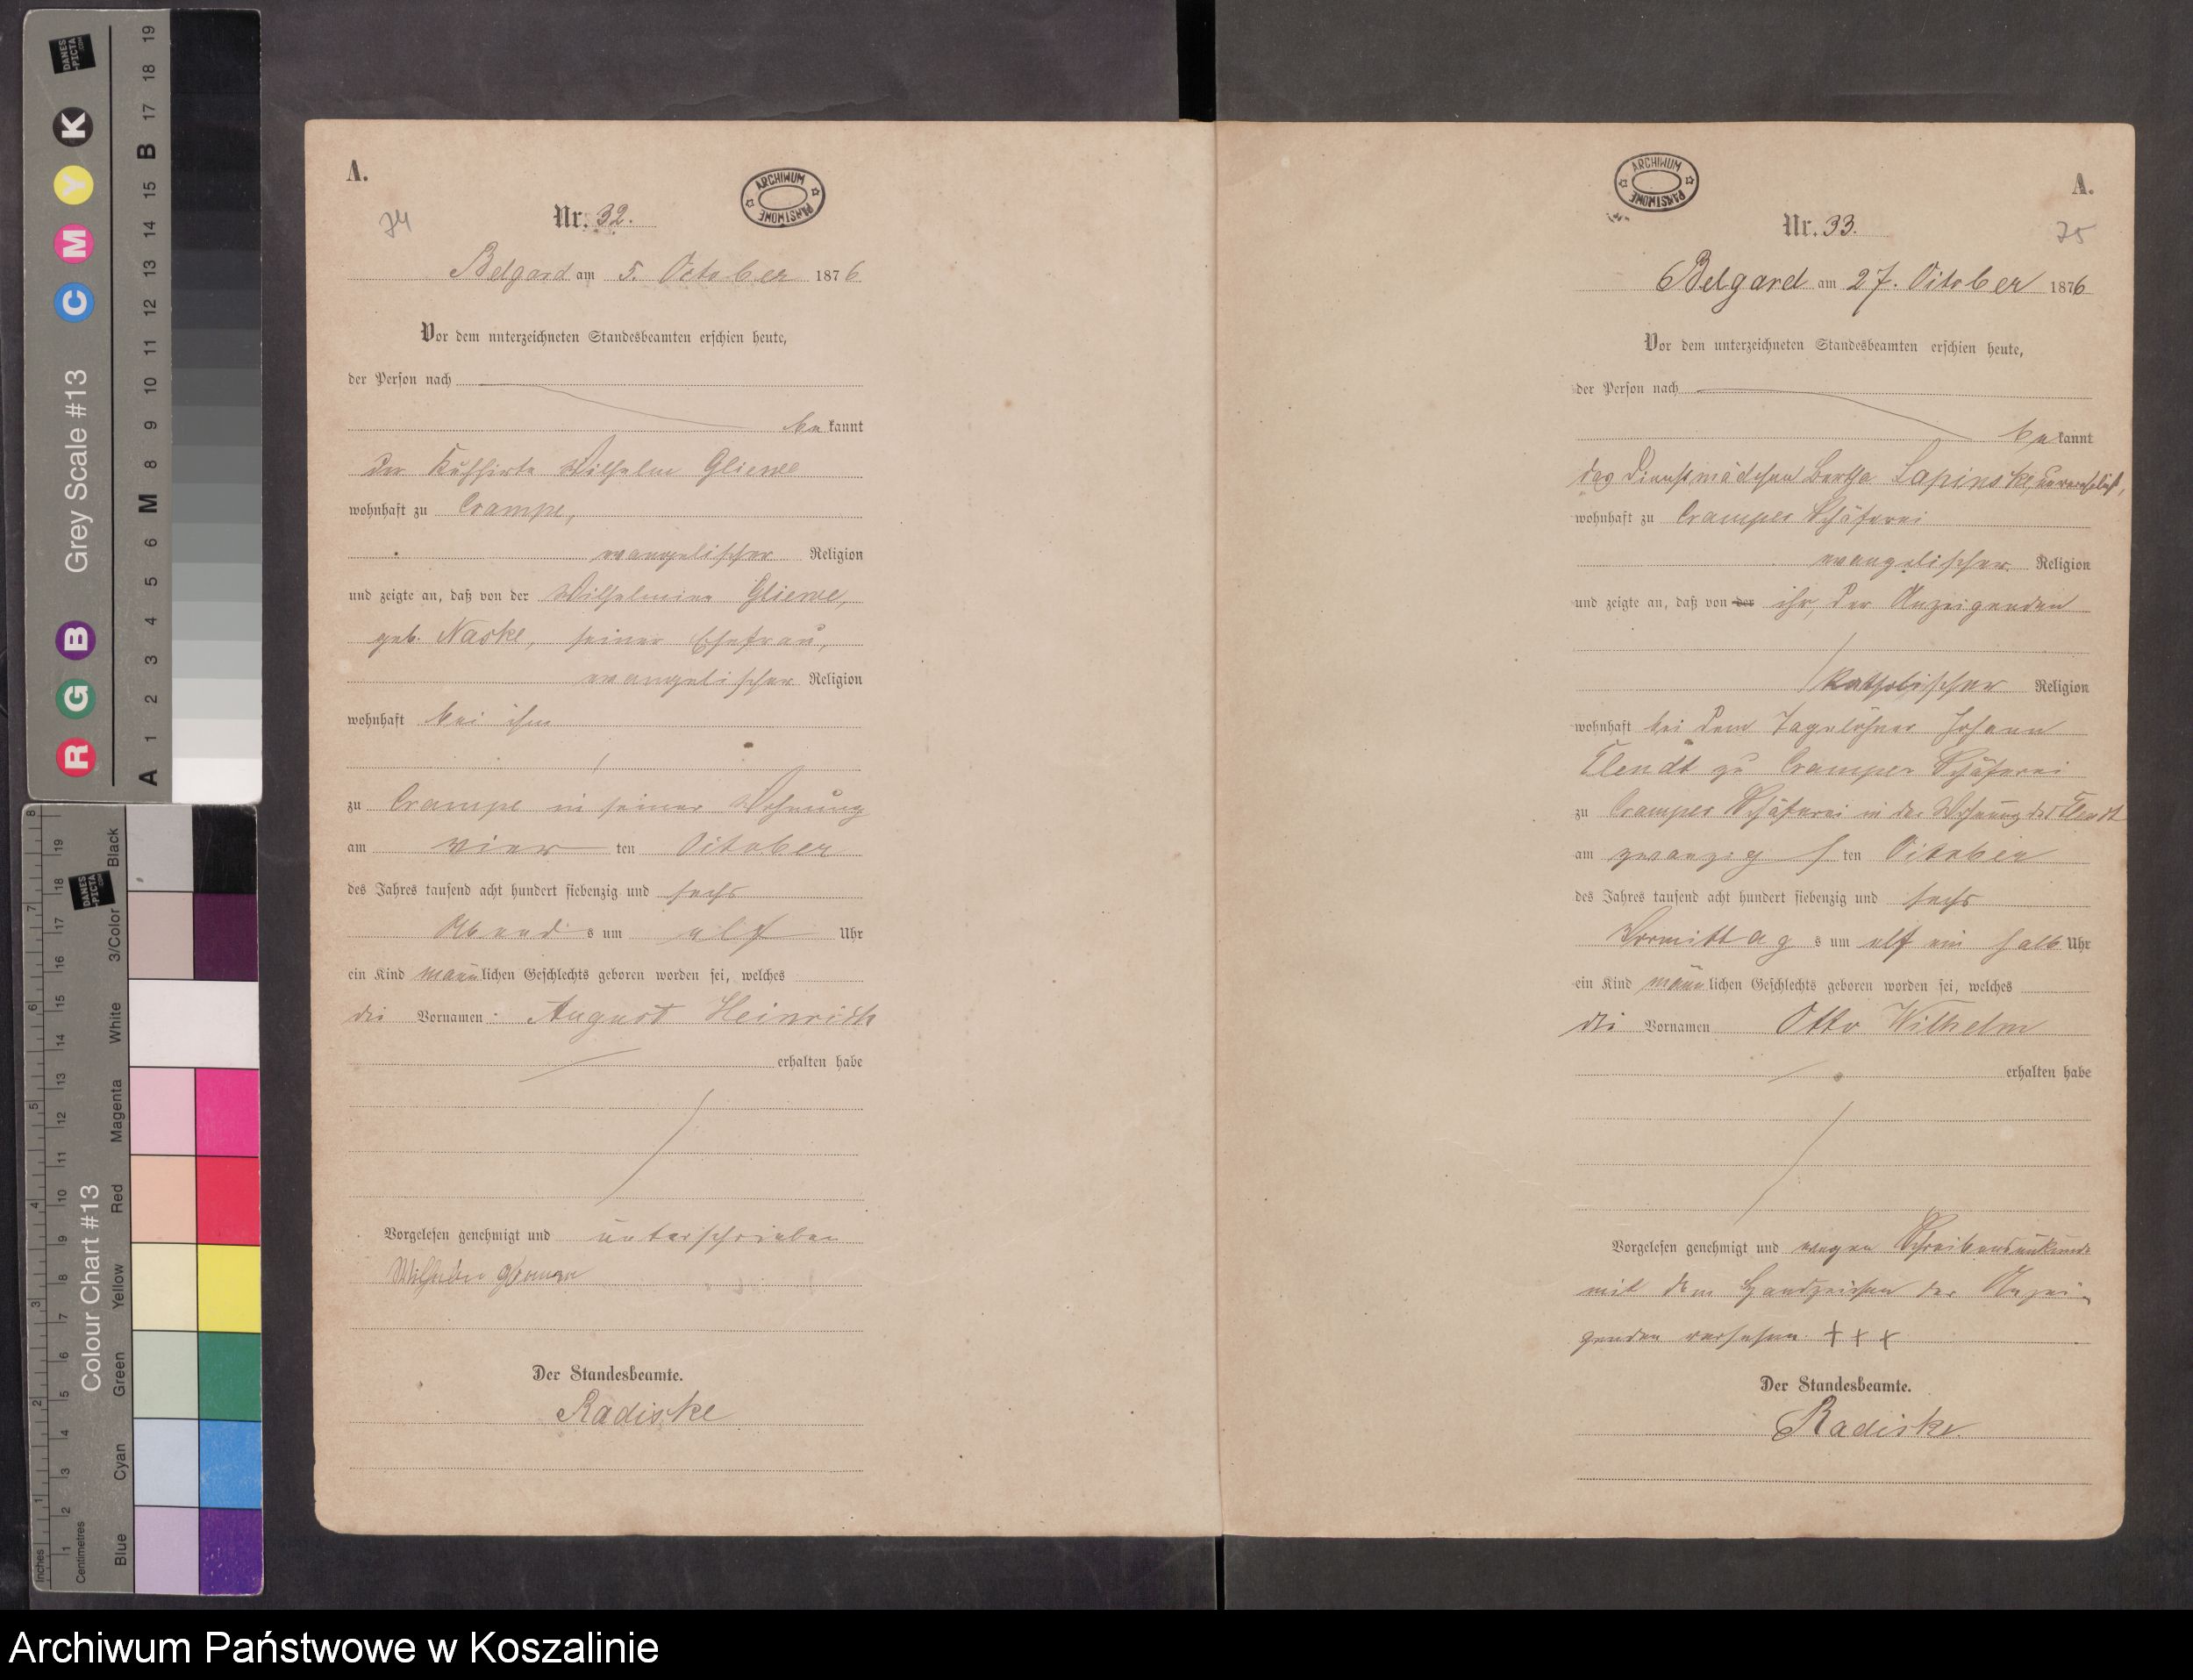 A.
74
Nr. 32.
ARCHIWUM PAŃSTWOWE
Belgard am 5. October 1876
Vor dem unterzeichneten Standesbeamten erschien heute,
der Person nach
bekannt
der Kuhhirte Wilhelm Gliewe
wohnhaft zu Crampe,
evangelischer Religion
und zeigte an, daß von der Wilhelmine Gliewe,
geb. Naske, seiner Ehefrau,
evangelischer Religion
wohnhaft bei ihm
zu Crampe in seiner Wohnung
am vier ten October
des Jahres tausend acht hundert siebenzig und sechs
Abend s um elf Uhr
ein Kind männlichen Geschlechts geboren worden sei, welches
die Vornamen: August Heinrich
erhalten habe
Vorgelesen genehmigt und unterschrieben
Wilhelm
Der Standesbeamte.
Radiske
A.
75
ARCHIWUM PAŃSTWOWE
Nr. 33.
Belgard am 27. October 1876
Vor dem unterzeichneten Standesbeamten erschien heute,
der Person nach
bekannt
das Dienstmädchen Bertha Lapinski, unverehelicht,
wohnhaft zu Cramper Schäferei
evangelischer Religion
und zeigte an, daß von der ihr, der Anzeigenden
katholischer Religion
wohnhaft bei dem Tagelöhner Johann
Flendt zu Cramper Schäferei
zu Cramper Schäferei in der Wohnung des Flendt
am zwanzigsten October
des Jahres tausend acht hundert siebenzig und sechs
Vormittag s um elf ein halb Uhr
ein Kind männlichen Geschlechts geboren worden sei, welches
die Vornamen Otto Wilhelm
erhalten habe
Vorgelesen genehmigt und wegen Schreibensunkunde
mit dem Handzeichen der Anzei-
genden versehen. + + +
Der Standesbeamte.
Radiske
DANES-PICTA.COM
Grey Scale #13
R G B C M Y K
A 1 2 3 4 5 6 M 8 9 10 11 12 13 14 15 B 17 18 19
DANES-PICTA.COM
Colour Chart #13
Blue Cyan Green Yellow Red Magenta White 3/Color Black
Inches 1 2 3 4 5 6 7 8
Centimetres 1 2 3 4 5 6 7 8 9 10 11 12 13 14 15 16 17 18 19
Archiwum Państwowe w Koszalinie